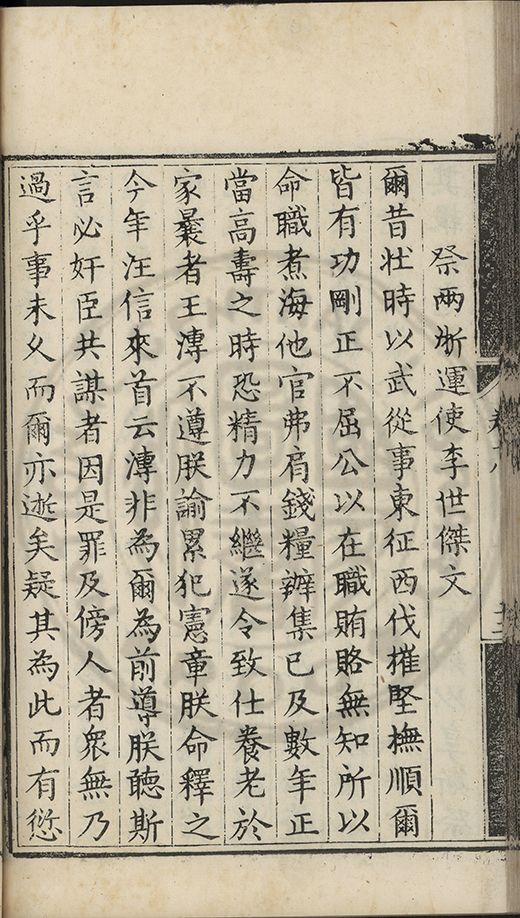 祭兩浙運使李世傑文
爾昔壯時以武從事東征西伐摧堅撫順爾
皆有功剛正不屈公以在職賄賂無知所以
命職煮海他官弗肩錢糧辦集已及數年正
當高壽之時恐精力不繼遂令致仕養老於
家曩者王溥不遵朕諭累犯憲章朕命釋之
今年汪信來首云溥非為爾為前導朕聽斯
言必奸臣共謀者因是罪及傍人者衆無乃
過乎事未乂而爾亦逝矣疑其為此而有愆